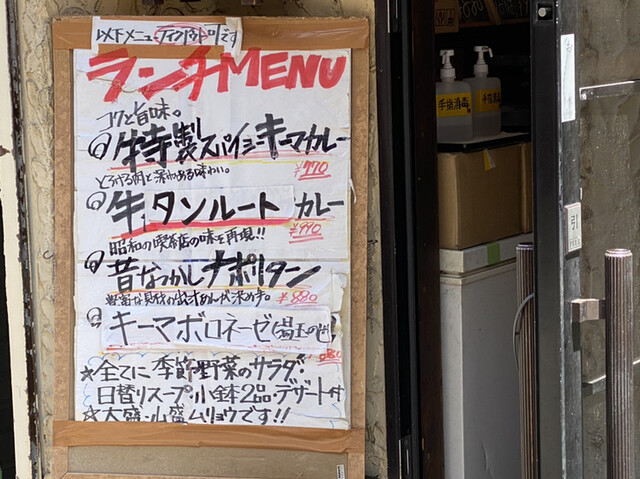 以下メニューテイクアウト可です
ランチMENU
コクと旨味。
特製スパイシーキーマカレー
¥770
とろける肉と深みある味わい。
牛タンルートカレー
¥990
昭和の喫茶店の味を再現!!
昔なつかしナポリタン
¥880
キーマボロネーゼ
☆全てに季節野菜のサラダ・
日替りスープ・小鉢2品・デザート付
☆大盛・小盛ムリョウです!!
手指消毒
手指消毒
引